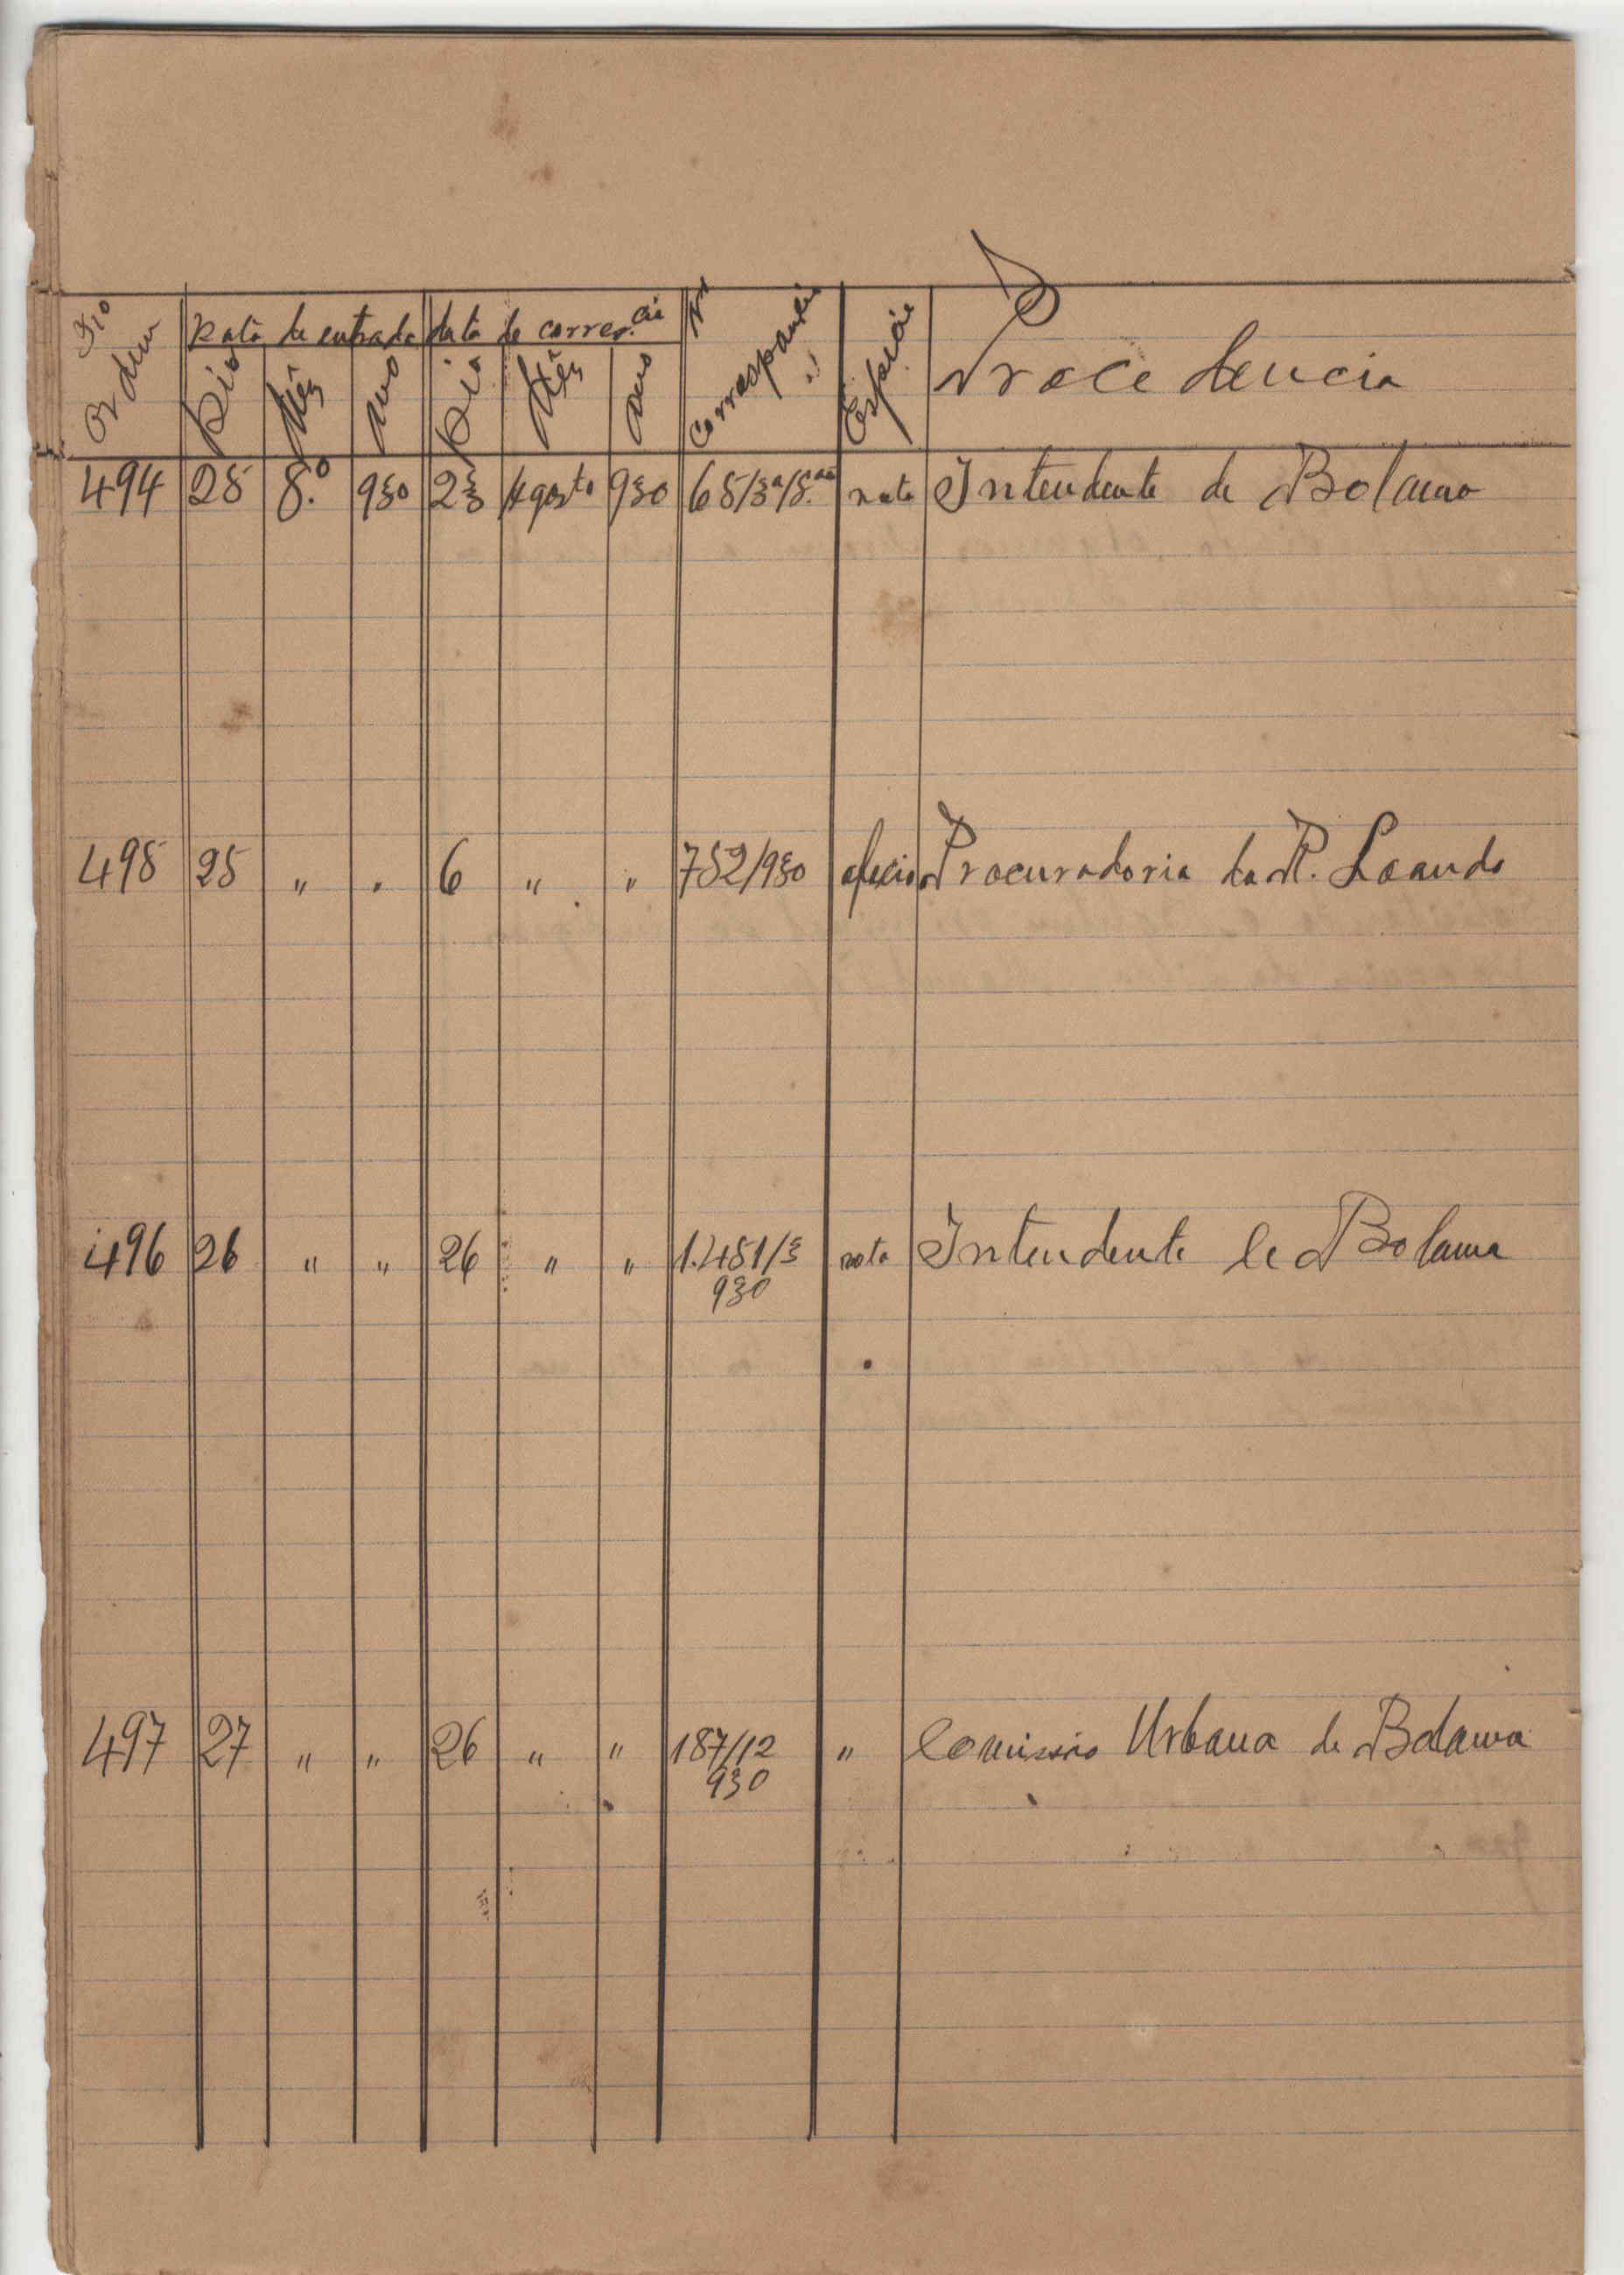 Nº Ordem
Data de entrada data de corresp.cia
Dia Mês Ano Dia Mês Ano Nº Correspondencia Especie Procedencia
494 25 8.º 930 23 Agosto 930 65/3ª/8.ªª nota Intendente de Bolama
495 25 " " 6 " " 752/930 oficio Procuradoria da R. Loanda
496 26 " " 26 " " 1.451/3 nota Intendente de Bolama
930
497 27 " " 26 " " 187/12 " Comissão Urbana de Bolama
930